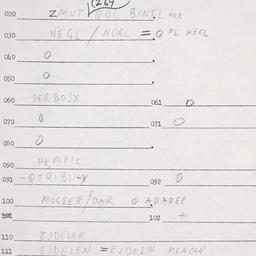 (264
020 ZMUT QGL BINTL HOR
030 NEGL / NOGL = Q PL NEGL
040 0
050 0
060 DERBOJX 061 0
070 0 071 0
080 0
090 PEMPIK
091 -QTRIBU-X 092 0
100 MOGBER/DAR Q ADARER
101 102 +
110 EJDELER
111 EJDELEN = EJDELN MENGEN